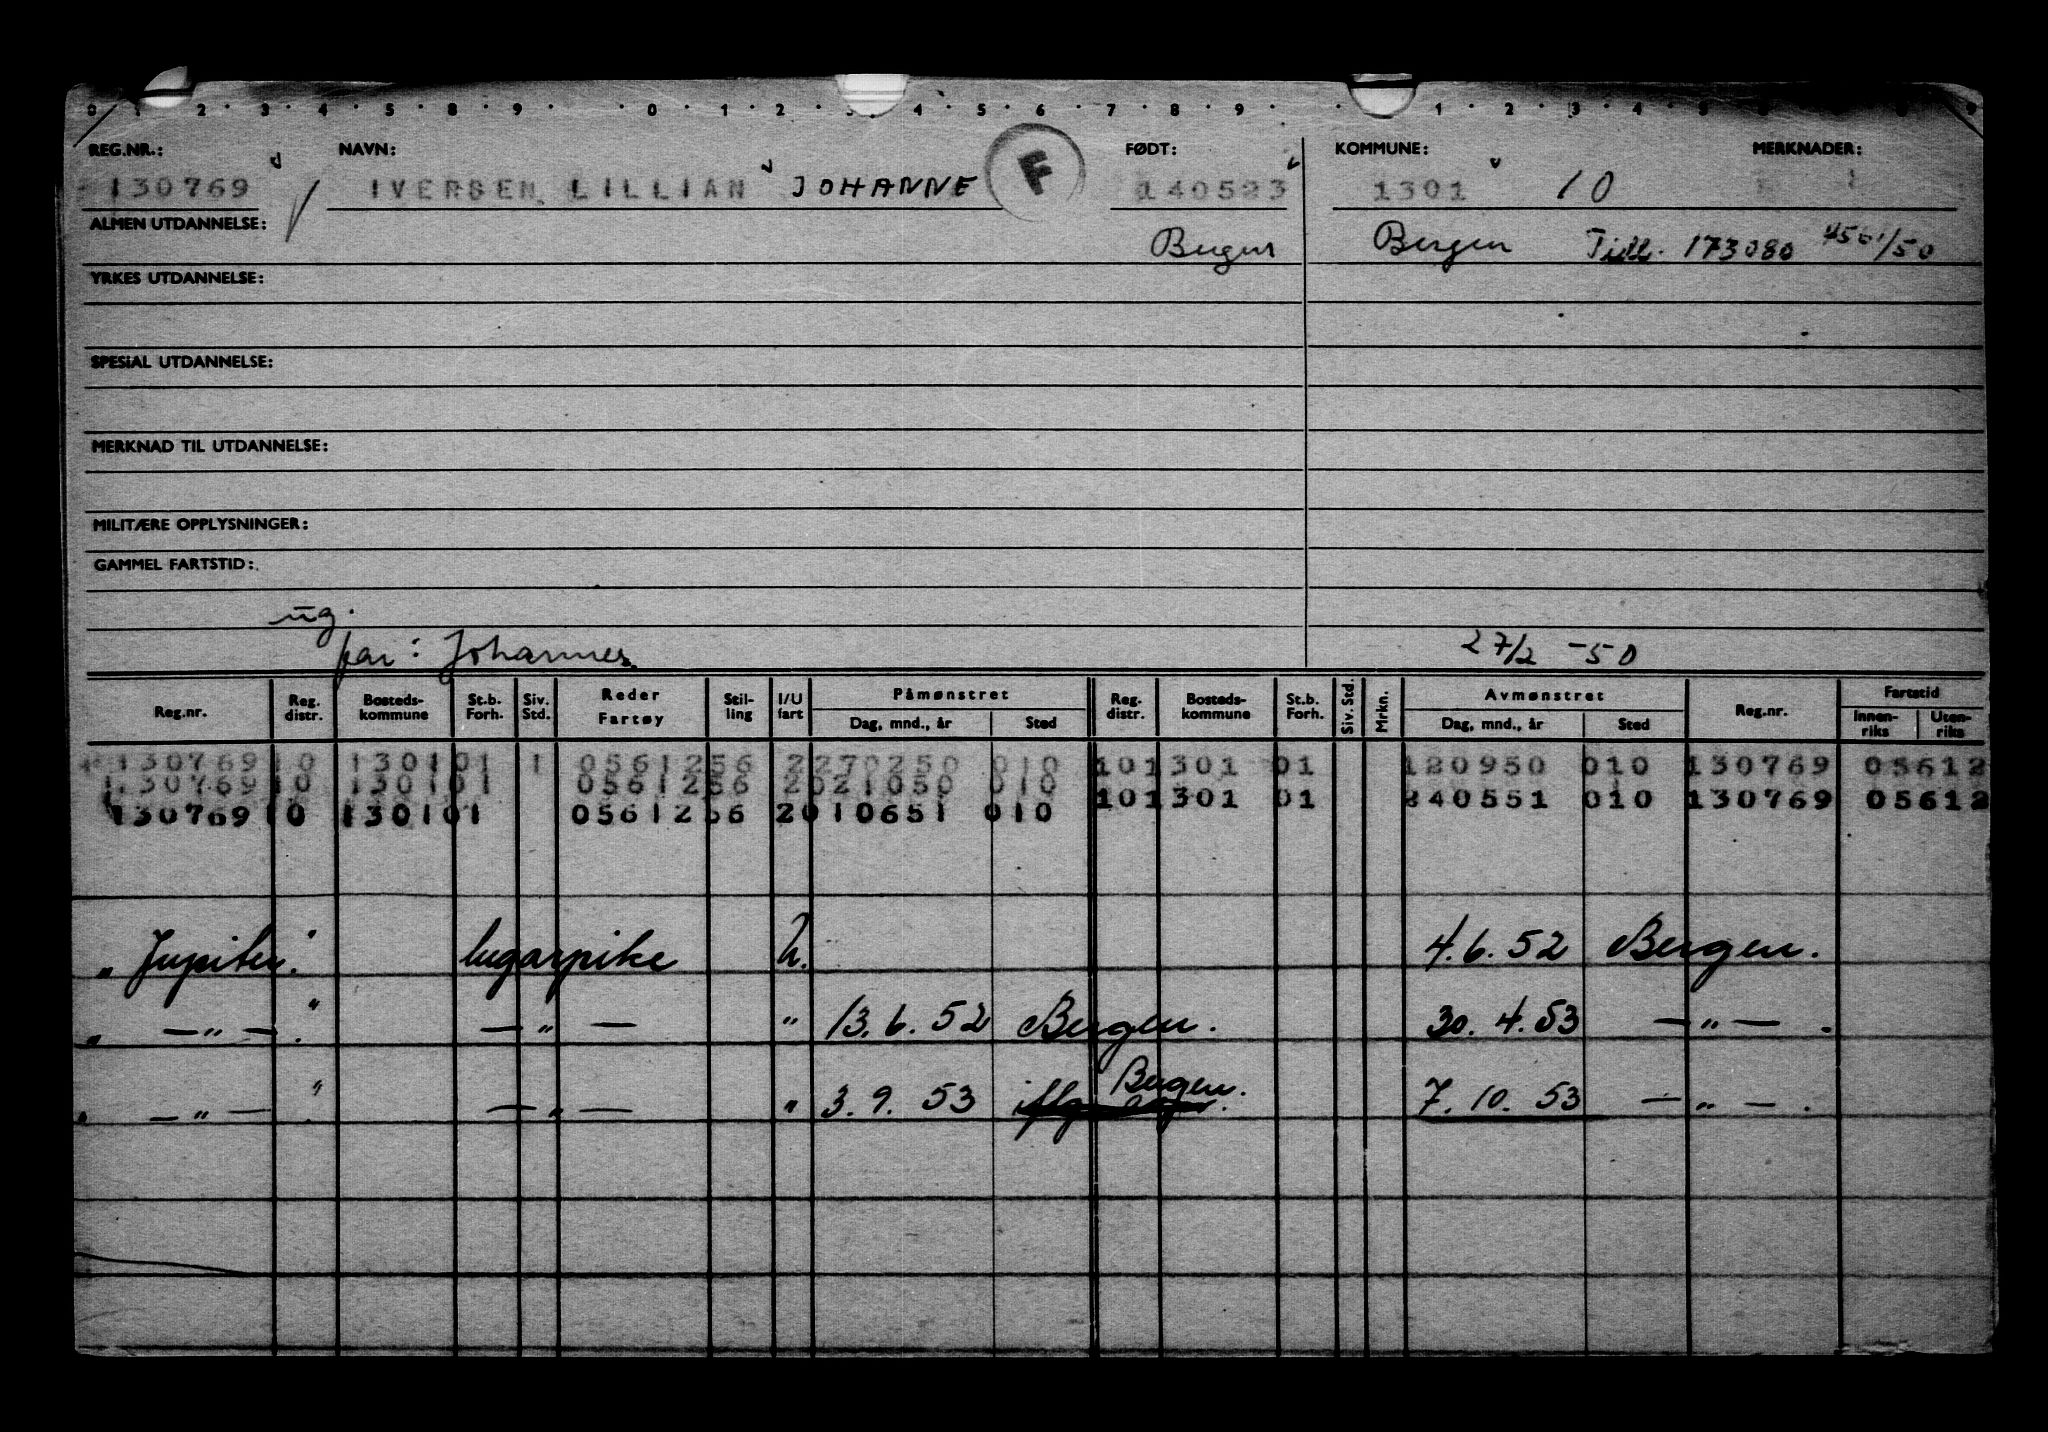 0 1 2 3 4 5 8 9 0 1 2 3 4 5 6 7 8 9 1 2 3 4 5
REG.NR.: NAVN: F FØDT: KOMMUNE: MERKNADER:
130769 IVERSEN LILLIAN JOHANNE 140523 1301 10
ALMEN UTDANNELSE: Bergen Bergen Till. 173080 4561/50
YRKES UTDANNELSE:
SPESIAL UTDANNELSE:
MERKNAD TIL UTDANNELSE:
MILITÆRE OPPLYSNINGER:
GAMMEL FARTSTID:
ug.
far: Johannes. 27/2 -50
Reg.nr. Reg. distr. Bosteds-kommune St.b. Forh. Siv. Std. Reder Fartøy Stil-ling I/U fart Påmønstret Dag, mnd., år Sted Reg. distr. Bosteds-kommune St.b. Forh. Siv. Std. Mrkn. Avmønstret Dag, mnd., år Sted Reg.nr. Fartstid Innen-riks Uten-riks
130769 10 1301 01 1 0561256 2 270250 010 10 1301 01 120950 010 130769 05612
130769 10 1301 01 0561256 2 021050 010 10 1301 01 240551 010 130769 05612
130769 10 1301 01 0561256 2 010651 010
„Jupiter." lugarpike U. 4.6.52 Bergen.
„ —"— ." —"— " 13.6.52 Bergen. 30.4.53 —"— .
„ —"— ." —"— " 3.9.53 Bergen. 7.10.53 —"— .